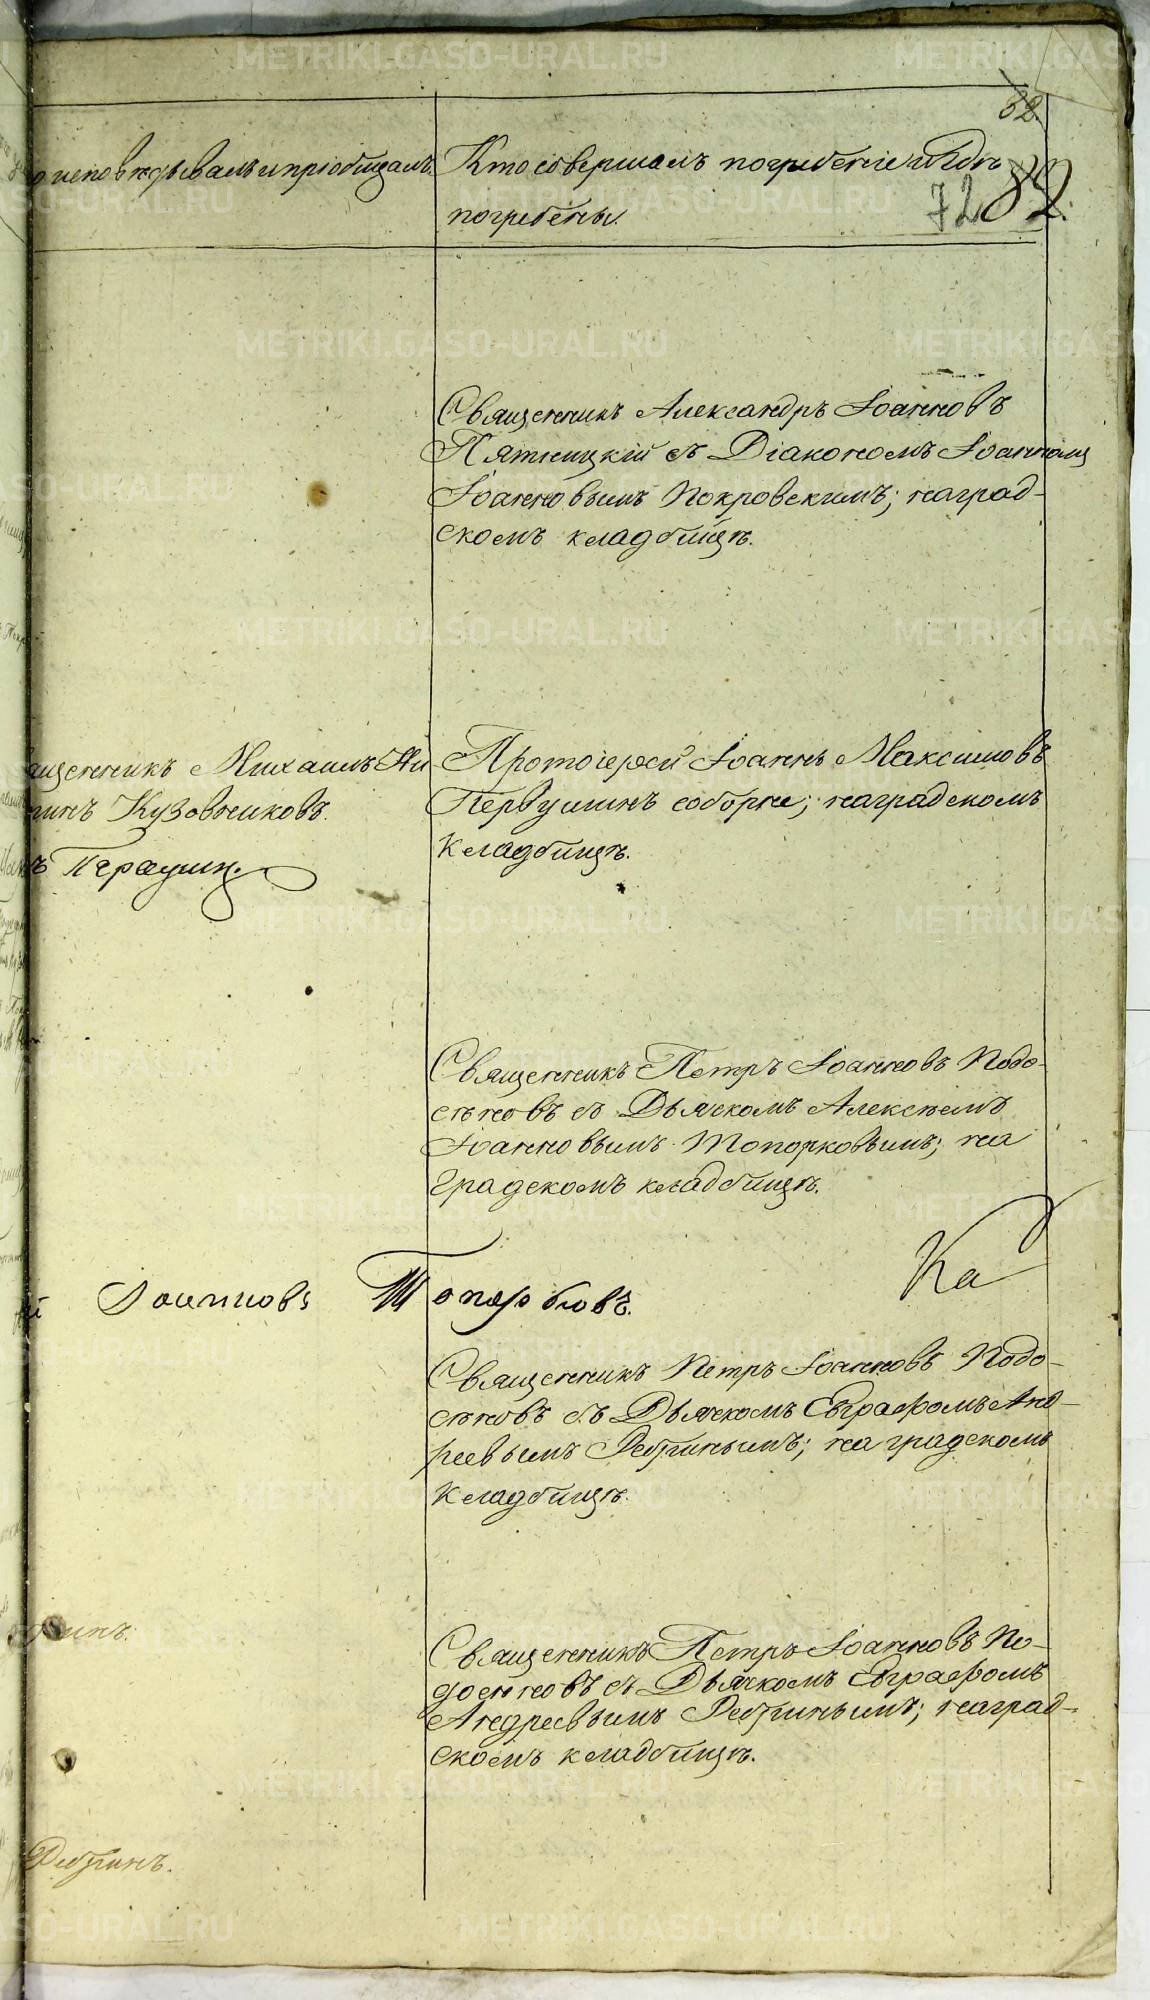 82.
исповѣдывалъ и пріобщалъ. Кто совершалъ погребеніе и гдѣ
погребены.
72 82.
Священникъ Александръ Іоанновъ
Пятницкій съ Діакономъ Іоанномъ
Іоанновымъ Покровскимъ; на град-
скомъ кладбищѣ.
ященникъ Михаилъ
Кузовниковъ.
Первушин.
Протоіерей Іоаннъ Максимовъ
Первушинъ соборне; на градскомъ
кладбищѣ.
Священникъ Петръ Іоанновъ Подо-
сѣновъ съ Дьячкомъ Алексѣемъ
Іоанновымъ Топорковымъ; на
градскомъ кладбищѣ.
й Іоанновъ Топорковъ.
Ка
Священникъ Петръ Іоанновъ Подо-
сѣновъ съ Дьячкомъ Евграфомъ Анд-
реевымъ Ребринымъ; на градскомъ
кладбищѣ.
Священникъ Петръ Іоанновъ По-
досѣновъ съ Дьячкомъ Евграфомъ
Андреевымъ Ребринымъ; на град-
скомъ кладбищѣ.
Ребринъ.
METRIKI.GASO-URAL.RU